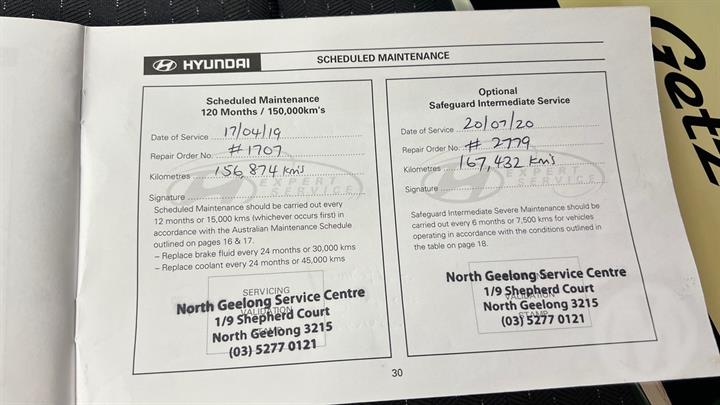 HYUNDAI
SCHEDULED MAINTENANCE
Scheduled Maintenance
120 Months / 150,000km's
Date of Service 17/04/19
Repair Order No. #1707
Kilometres 156,874 Km's
Signature
EXPERT
SERVICE
Scheduled Maintenance should be carried out every
12 months or 15,000 kms (whichever occurs first) in
accordance with the Australian Maintenance Schedule
outlined on pages 16 & 17.
– Replace brake fluid every 24 months or 30,000 kms
– Replace coolant every 24 months or 45,000 kms
SERVICING
VALIDATION
STAMP
North Geelong Service Centre
1/9 Shepherd Court
North Geelong 3215
(03) 5277 0121
Optional
Safeguard Intermediate Service
Date of Service 20/07/20
Repair Order No. # 2779
Kilometres 167,432 Km's
Signature
EXPERT
SERVICE
Safeguard Intermediate Severe Maintenance should be
carried out every 6 months or 7,500 kms for vehicles
operating in accordance with the conditions outlined in
the table on page 18.
VALIDATION
STAMP
North Geelong Service Centre
1/9 Shepherd Court
North Geelong 3215
(03) 5277 0121
30
Getz